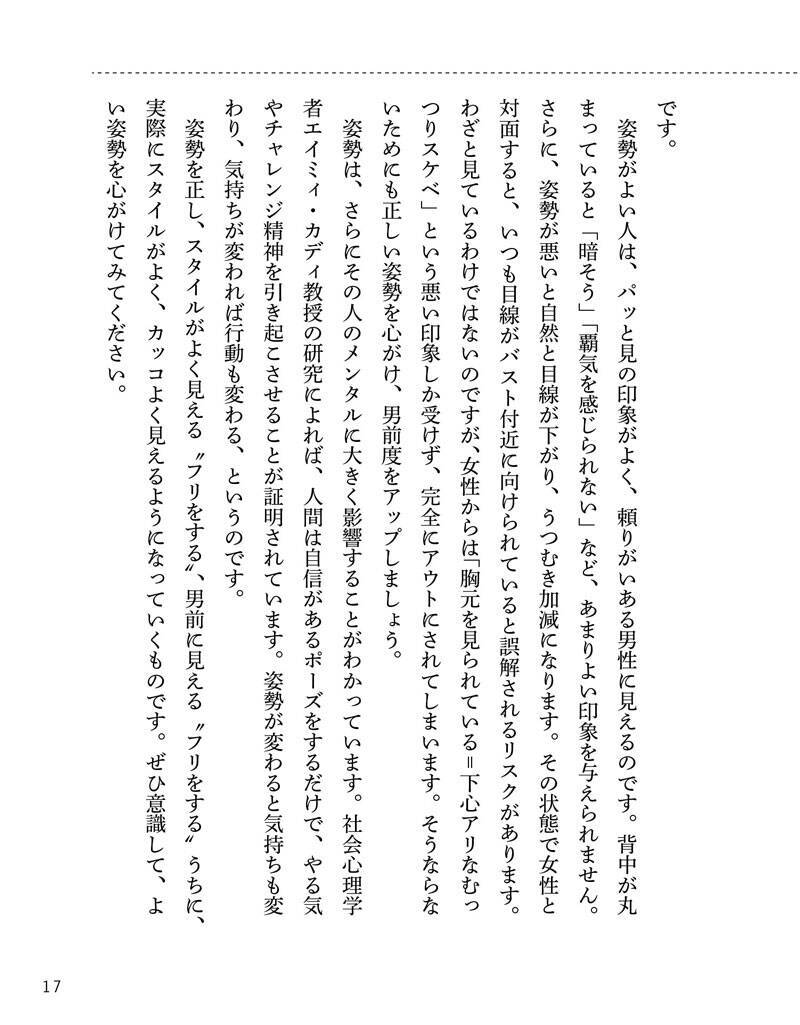 です。
姿勢がよい人は、パッと見の印象がよく、頼りがいある男性に見えるのです。背中が丸
まっていると「暗そう」「覇気を感じられない」など、あまりよい印象を与えられません。
さらに、姿勢が悪いと自然と目線が下がり、うつむき加減になります。その状態で女性と
対面すると、いつも目線がバスト付近に向けられていると誤解されるリスクがあります。
わざと見ているわけではないのですが、女性からは「胸元を見られている=下心アリなむっ
つりスケベ」という悪い印象しか受けず、完全にアウトにされてしまいます。そうならな
いためにも正しい姿勢を心がけ、男前度をアップしましょう。
姿勢は、さらにその人のメンタルに大きく影響することがわかっています。社会心理学
者エイミィ・カディ教授の研究によれば、人間は自信があるポーズをするだけで、やる気
やチャレンジ精神を引き起こさせることが証明されています。姿勢が変わると気持ちも変
わり、気持ちが変われば行動も変わる、というのです。
姿勢を正し、スタイルがよく見える〝フリをする〟、男前に見える〝フリをする〟うちに、
実際にスタイルがよく、カッコよく見えるようになっていくものです。ぜひ意識して、よ
い姿勢を心がけてみてください。
17